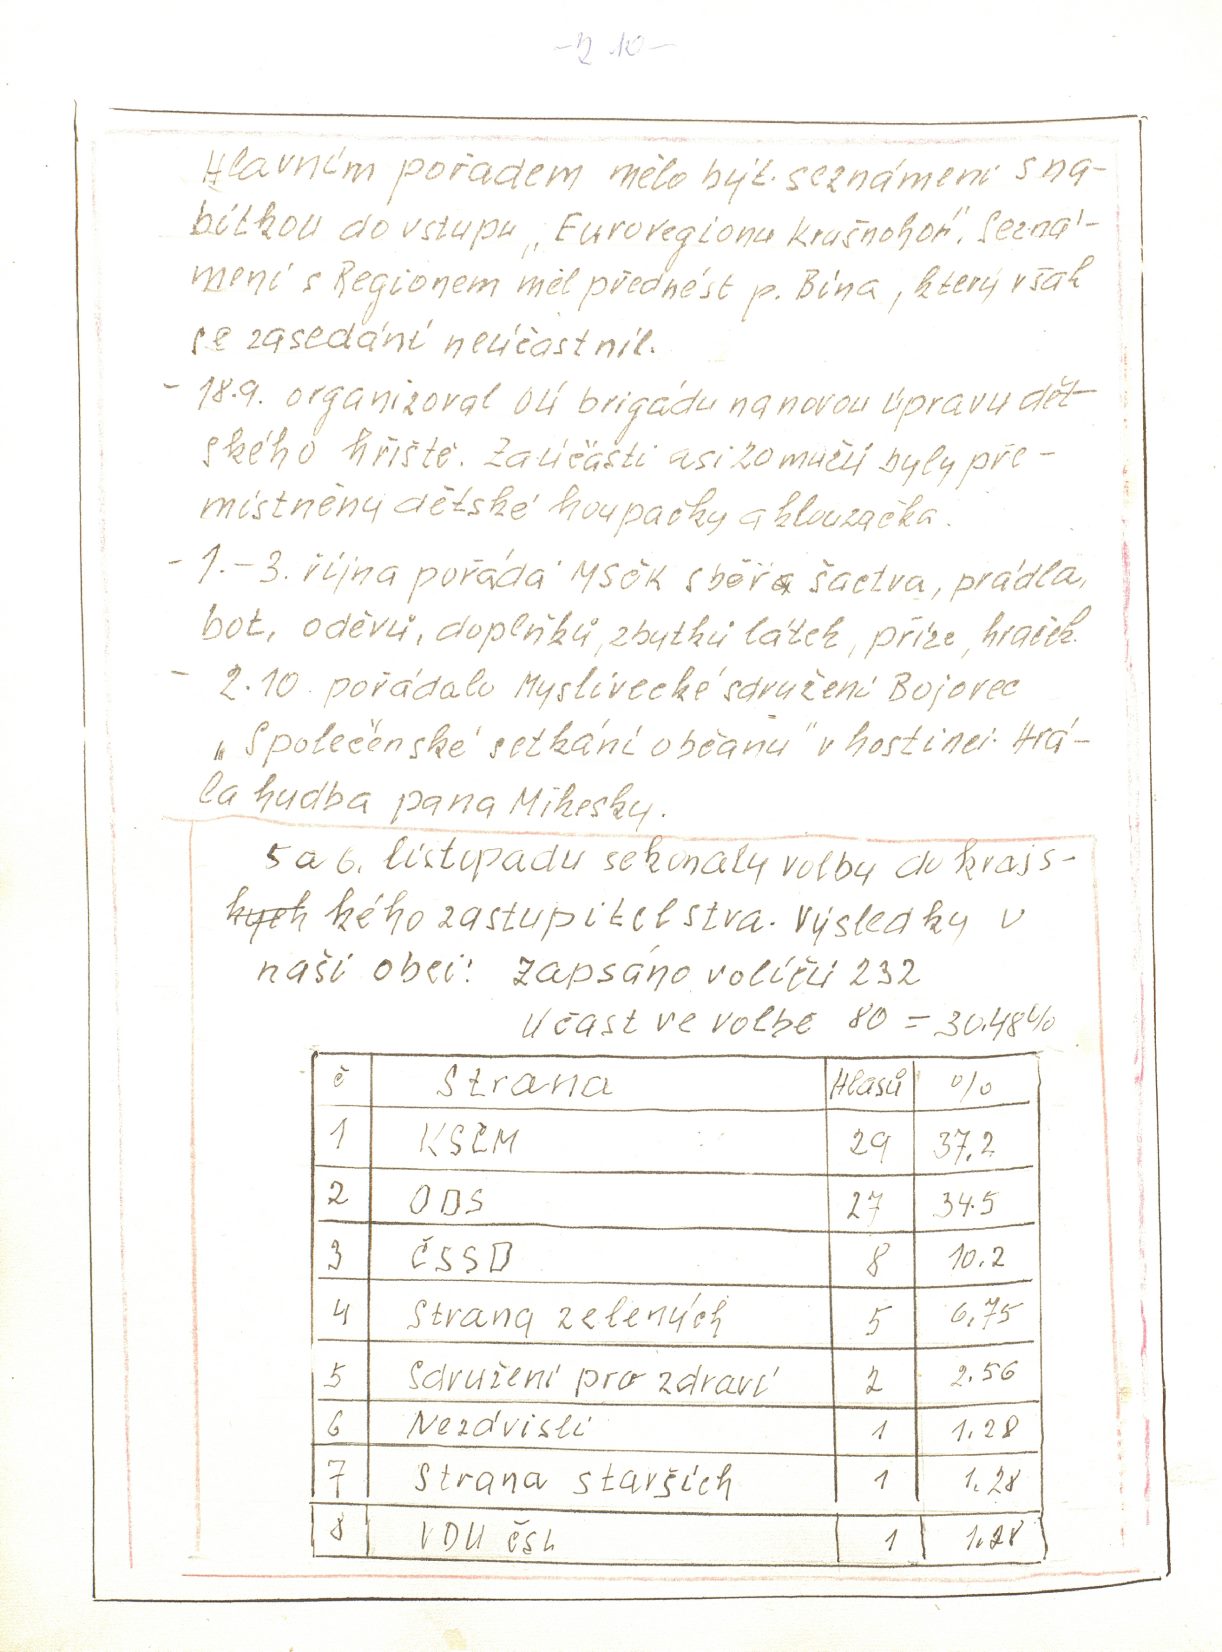 Hlavním pořadem mělo být seznámení s na-
bítkou do vstupu „Euroregionu Krušnohoří". Sezná-
mení s Regionem měl přednést p. Bína, který však
se zasedání neúčastnil.
- 18.9. organizoval OÚ brigádu na novou úpravu dět-
ského hřiště. Za účásti asi 20 mužů byly pře-
místněny dětské houpačky a klouzačka.
- 1.-3. října pořádá MSČK sběr šactva, prádla,
bot, oděvů, doplňků, zbytků látek, příze, hraček.
- 2.10. pořádalo Myslivecké sdružení Bojovec
„Společenské setkání občanů" v hostinci. Hrá-
la hudba pana Mikesky.
5 a 6. listopadu se konaly volby do krajs-
kých kého zastupitelstva. Výsledky v
naší obci: Zapsáno voličů 232
Učast ve volbě 80 = 30.48%
č Strana Hlasů %
1 KSČM 29 37,2
2 ODS 27 34.5
3 ČSSD 8 10.2
4 Strana zelených 5 6,75
5 Sdružení pro zdraví 2 2.56
6 Nezávislí 1 1.28
7 Strana starších 1 1.28
8 VDU čsl 1 1.28